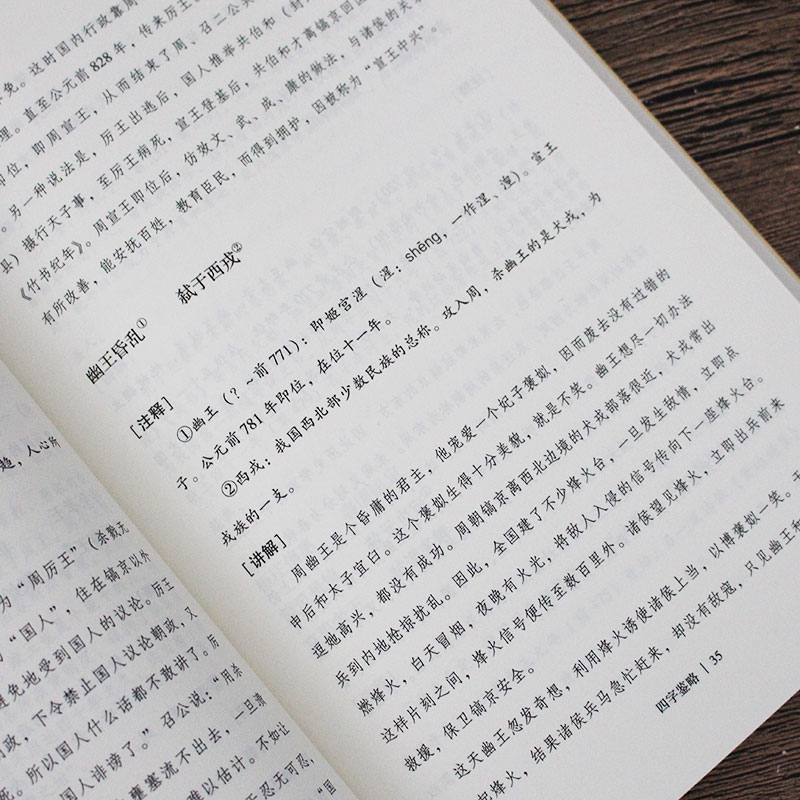 趋，人心所
为“周厉王”（杀戮无
“国人”，住在镐京以外
避免地受到国人的议论。厉王
，下令禁止国人议论朝政，又
况所有的国人什么话都不敢讲了。厉
国人诽谤了。”召公说：“用杀
壅塞流不出去，一旦溃
难以估计。不如让
王忍无可忍，
“国
免。这时国内行政靠周
理。直至公元前828年，传来厉王
即位，即周宣王，从而结束了周、召二公共
。另一种说法是，厉王出逃后，国人推举共伯和（封
县）摄行天子事，至厉王病死，宣王登基后，共伯和才离镐京回国
《竹书纪年》。周宣王即位后，仿效文、武、成、康的做法，与诸侯的关系
有所改善，能安抚百姓，教育臣民，而得到拥护，因被称为“宣王中兴”。
幽王昏乱① 弑于西戎②
[注释]
①幽王（？~前771）：即姬宫湦（湦：shēng，一作涅、湟）。宣王
子。公元前781年即位，在位十一年。
②西戎：我国西北部少数民族的总称。攻入周，杀幽王的是犬戎，为
戎族的一支。
[讲解]
周幽王是个昏庸的君主，他宠爱一个妃子褒姒，因而废去没有过错的
申后和太子宜臼。这个褒姒生得十分美貌，就是不笑。幽王想尽一切办法
逗她高兴，都没有成功。周朝镐京离西北边境的犬戎部落很近，犬戎常出
兵到内地抢掠扰乱。因此，全国建了不少烽火台，一旦发生敌情，立即点
燃烽火，白天冒烟，夜晚有火光，将敌人入侵的信号传向下一座烽火台。
这样片刻之间，烽火信号便传至数百里外。诸侯望见烽火，立即出兵前来
救援，保卫镐京安全。
这天幽王忽发奇想，利用烽火诱使诸侯上当，以博褒姒一笑。于
起烽火，结果诸侯兵马急忙赶来，却没有敌寇，只见幽王和
四字鉴略 | 35